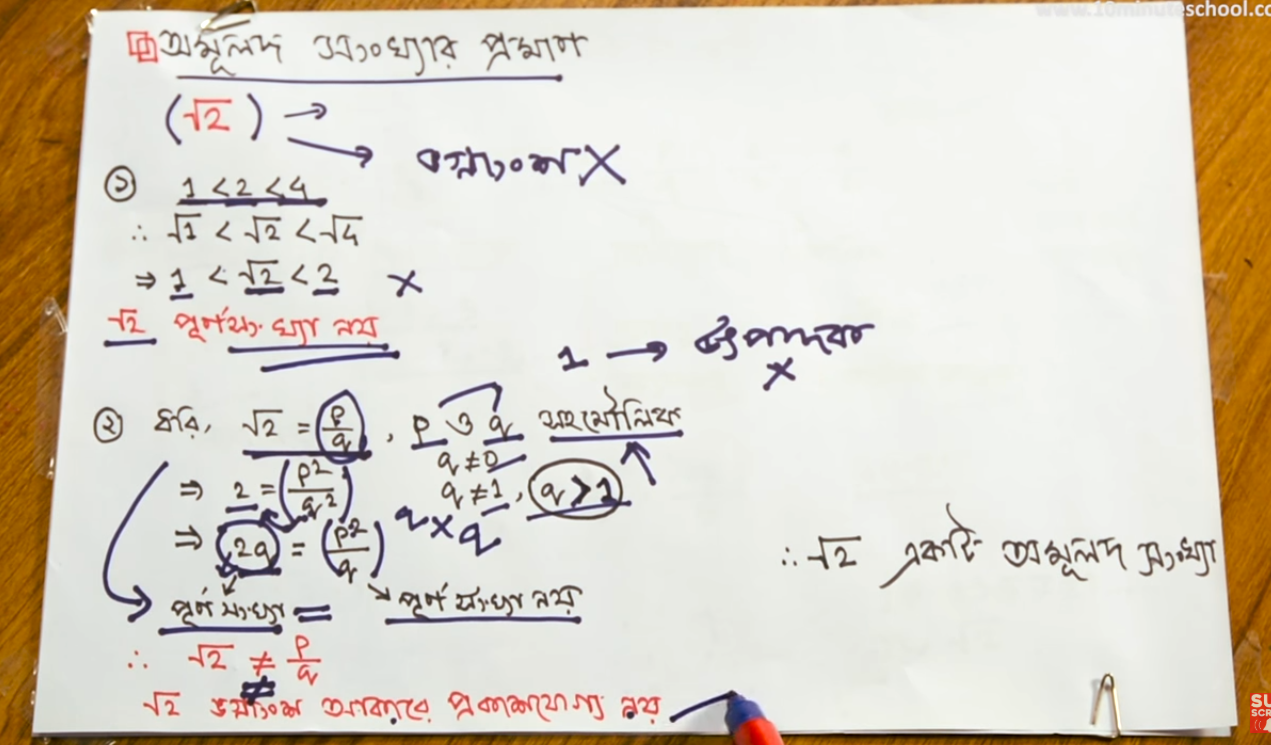 www.10minuteschool.co
অমূলদ সংখ্যার প্রমাণ
(√2) →
→ ভগ্নাংশ ×
① 1 < 2 < 4
∴ √1 < √2 < √4
⇒ 1 < √2 < 2 ×
√2 পূর্ণসংখ্যা নয়
1 → উৎপাদক
×
② ধরি, √2 = p/q , p ও q সহমৌলিক
q ≠ 0
⇒ 2 = (p²/q²) q ≠ 1, q > 1
⇒ 2q = (p²/q) q × q
পূর্ণ সংখ্যা = পূর্ণ সংখ্যা নয়
∴ √2 ≠ p/q
≠
√2 ভগ্নাংশ আকারে প্রকাশযোগ্য নয়
∴ √2 একটি অমূলদ সংখ্যা
SU
SCR